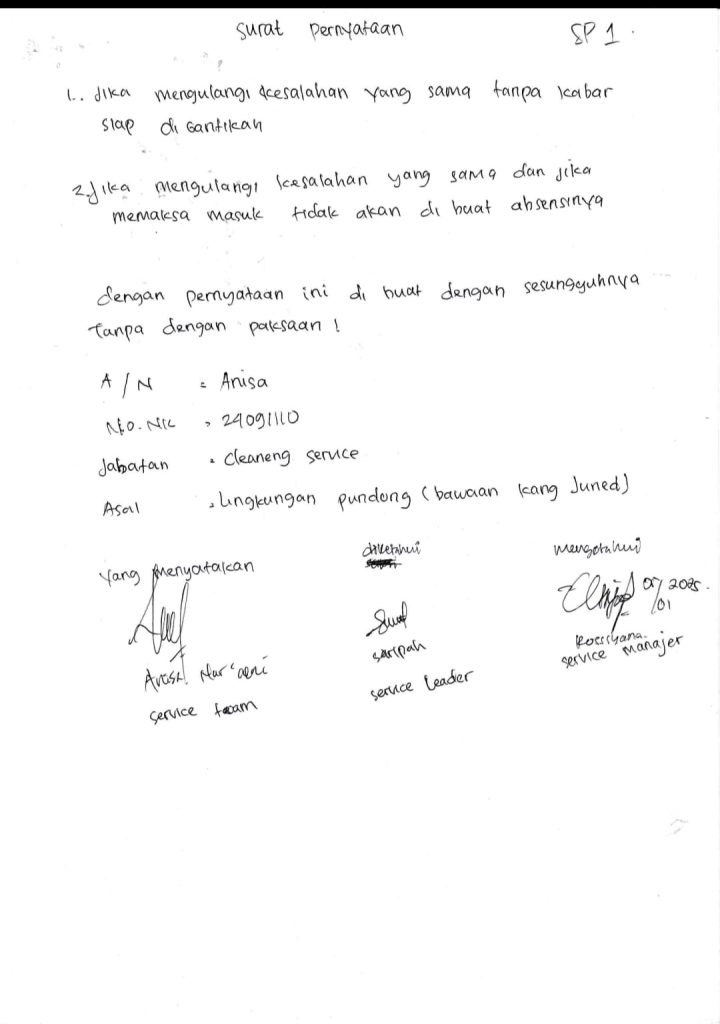 surat pernyataan SP 1.
1.. Jika mengulangi kesalahan yang sama tanpa kabar
siap di gantikan
2. Jika mengulangi kesalahan yang sama dan jika
memaksa masuk tidak akan di buat absensinya
dengan pernyataan ini di buat dengan sesungguhnya
tanpa dengan paksaan !
A/N = Anisa
No. NIK : 24091110
Jabatan : Cleaneng service
Asal : Lingkungan pundong (bawaan kang Juned)
yang menyatakan diketahui mengetahui
07/01 2025.
saripah
service Manajer
Nur'aeni
service leader
service team